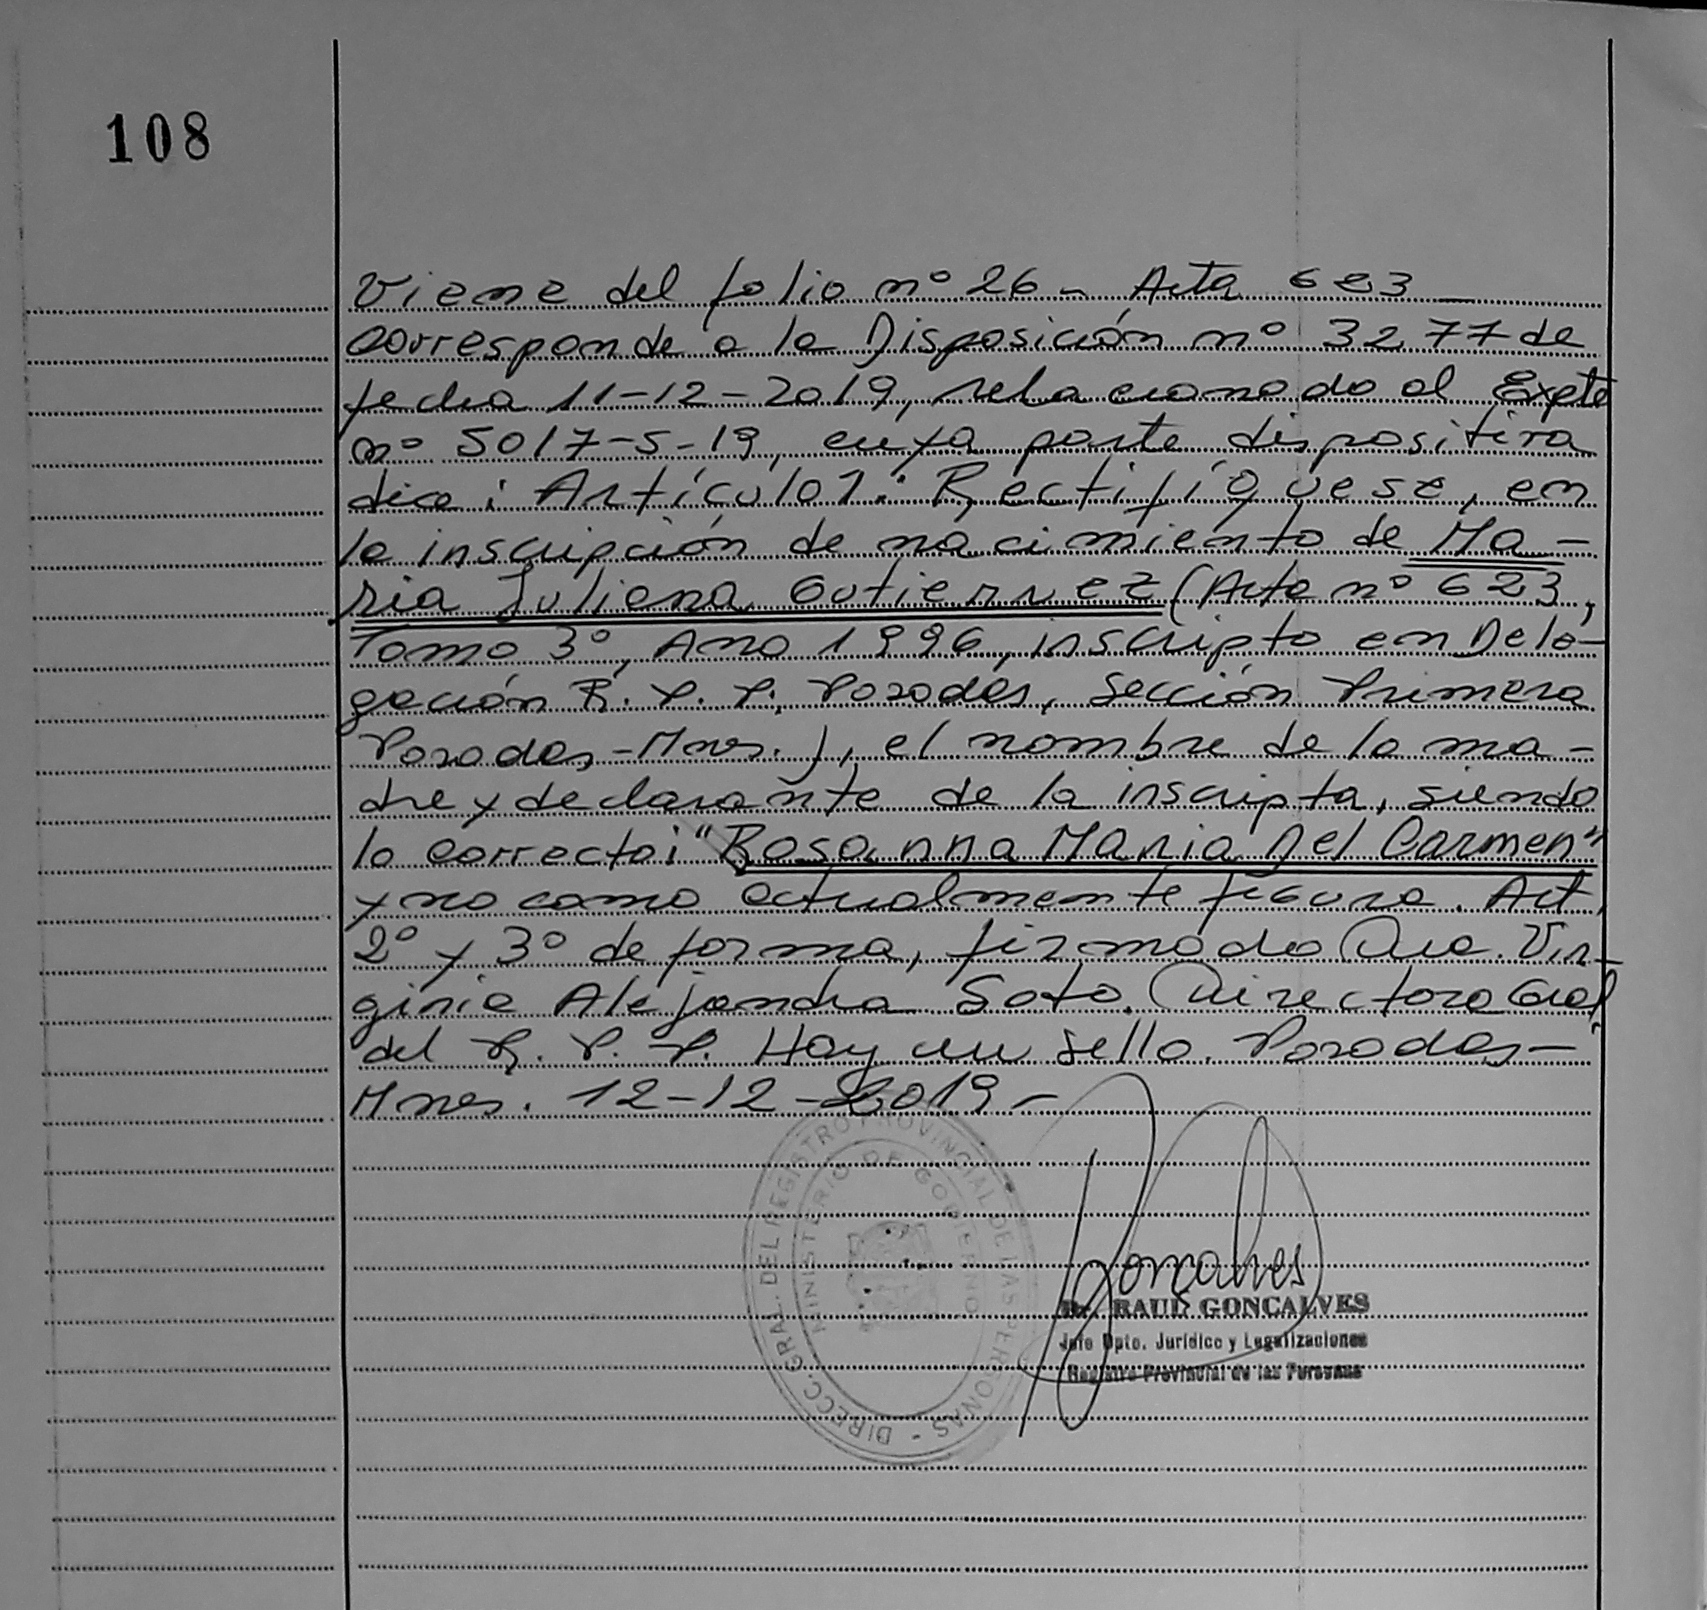 108
Viene del folio nº 26 - Acta 623
corresponde a la Disposición nº 3277 de
fecha 11-12-2019, relacionado al Expte
nº 5017-S-19, cuya parte dispositiva
dice: Artículo 1: Rectifíquese, en
la inscripción de nacimiento de Ma-
ria Juliana Gutierrez (Acta nº 623,
Tomo 3º, Año 1996, inscripto en Dele-
gación R. P. P. Posadas, Sección Primera
Posadas-Mnes.), el nombre de la ma-
dre y declarante de la inscripta, siendo
lo correcto: "Rosanna Maria Del Carmen"
y no como actualmente figura. Art.
2º y 3º de forma, firmado Dra. Vir-
ginia Alejandra Soto. Directora Gral
del R. P. P. Hay un sello. Posadas-
Mnes. 12-12-2019-
DIRECC. GRAL. DEL REGISTRO PROVINCIAL DE LAS PERSONAS -
MINISTERIO DE GOBIERNO
Goncalves
Dr. RAUL GONCALVES
Jefe Dpto. Jurídico y Legalizaciones
Registro Provincial de las Personas